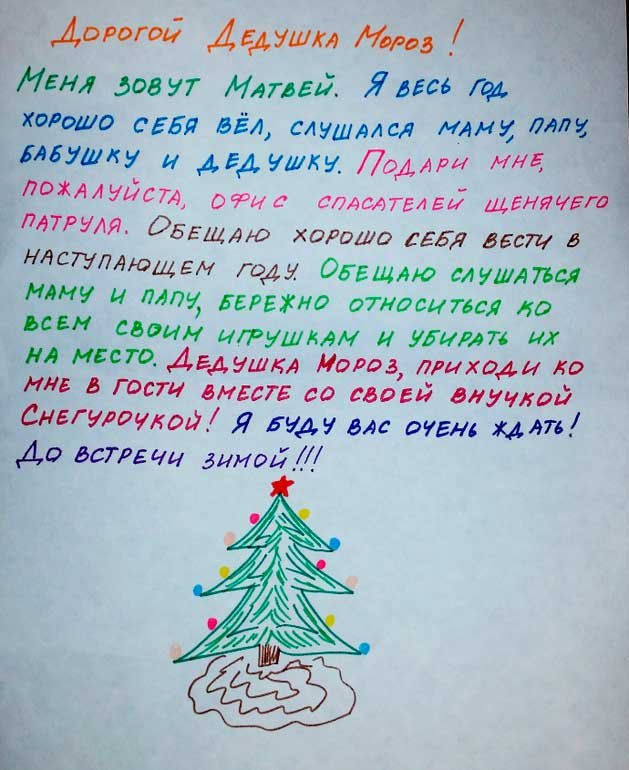 Дорогой Дедушка Мороз!
Меня зовут Матвей. Я весь год
хорошо себя вёл, слушался маму, папу,
бабушку и дедушку. Подари мне,
пожалуйста, офис спасателей щенячего
патруля. Обещаю хорошо себя вести в
наступающем году. Обещаю слушаться
маму и папу, бережно относиться ко
всем своим игрушкам и убирать их
на место. Дедушка Мороз, приходи ко
мне в гости вместе со своей внучкой
Снегурочкой! Я буду вас очень ждать!
До встречи зимой!!!